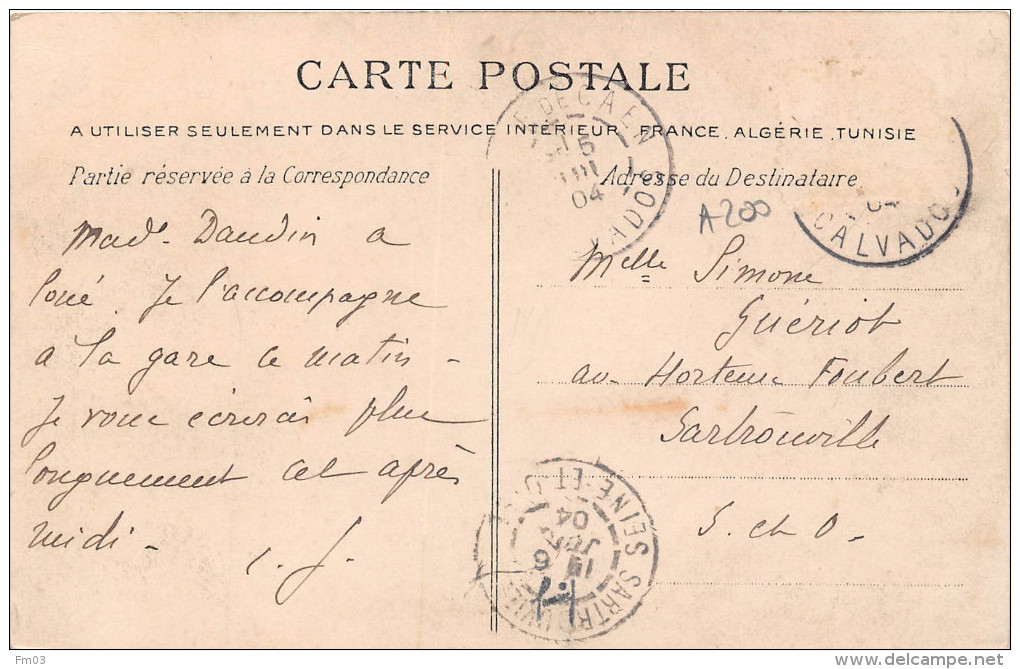 CARTE POSTALE
A UTILISER SEULEMENT DANS LE SERVICE INTÉRIEUR, FRANCE, ALGÉRIE, TUNISIE
Partie réservée à la Correspondance
Adresse du Destinataire
Made. Daudin a
loué. Je l'accompagne
à la gare ce matin -
Je vous écrirai plus
longuement cet après
midi -
A200
Melle Simone
Guériot
av. Hortense Foubert
Sartrouville
S. et O.
DE CAEN
15
04
CALVADOS
SARTROUVILLE
SEINE-ET-O
6
04
Fm03
www.delcampe.net